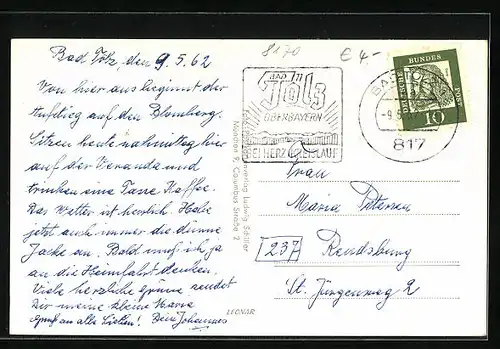 Bad Tölz, den 9.5.62
Von hier aus beginnt der
Aufstieg auf den Blomberg.
Sitzen heute nahmittag hier
auf der Veranda und
trinken eine Tasse Kaffee.
Das Wetter ist herlich. Habe
jetzt auch immer die dünne
Jacke an. Bald muß ich ja
an die Heimfahrt denken.
Viele herzliche Grüsse sendet
Dir meine kleine Maria
Gruß an alle Lieben! Dein Johannes
8170
€ 4,-
BAD
Tölz
OBERBAYERN
BEI HERZ KREISLAUF
BAD
-9.5.
817
DEUTSCHE BUNDES POST
10
Ludwig Schiller
München 9, Columbus Straße 2
LEONAR
Frau
Maria Petersen
237 Rendsburg
St. Jürgenweg 2